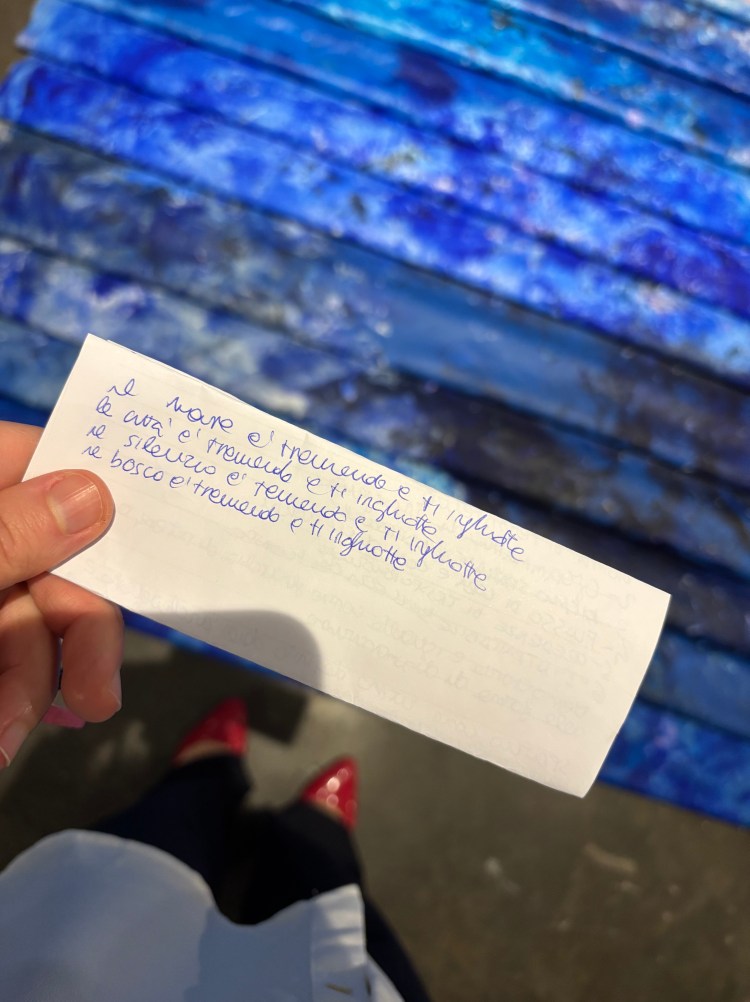 il mare e' tremendo e ti inghiotte
la citta' e' tremendo e ti inghiotte
il silenzio e' temendo e ti inghiottre
il bosco e' tremendo e ti inghiotte